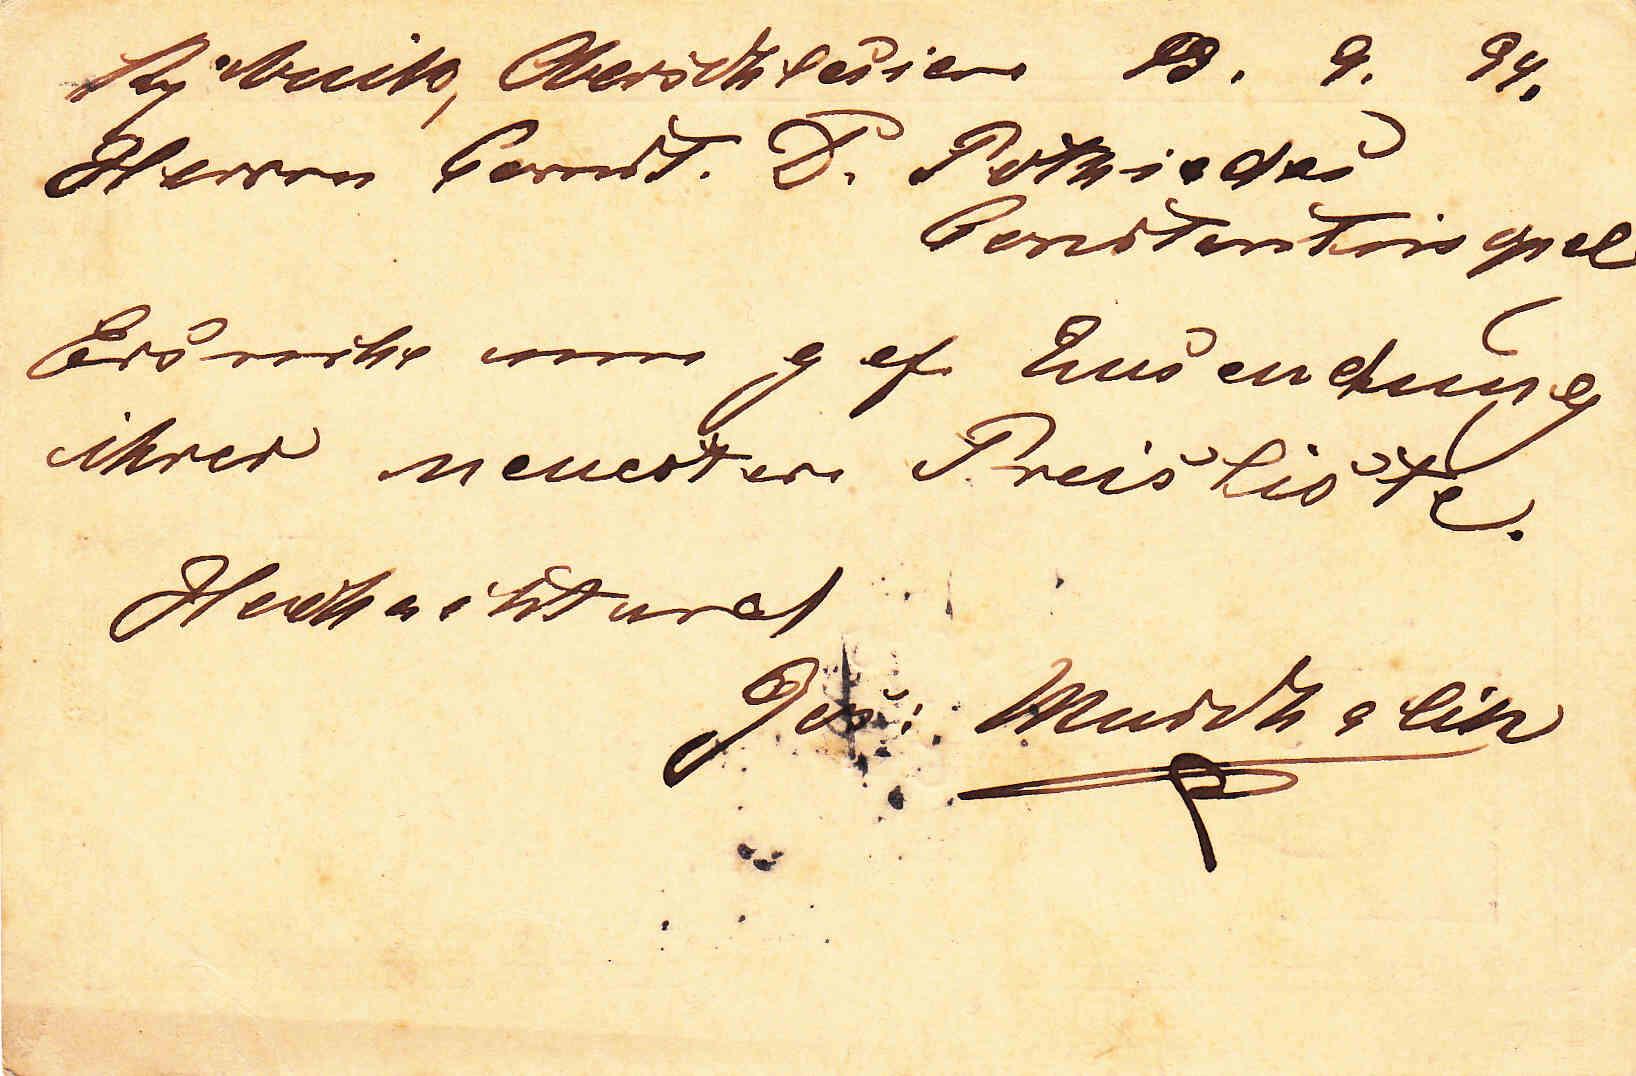 Rybnik, Oberschlesien 13. 9. 94.
Herrn Const. D. Pothiades
Constantinopel
Ersuche um gef. Zusendung
ihrer neuesten Preisliste.
Hochachtend
Jos: Muschalik